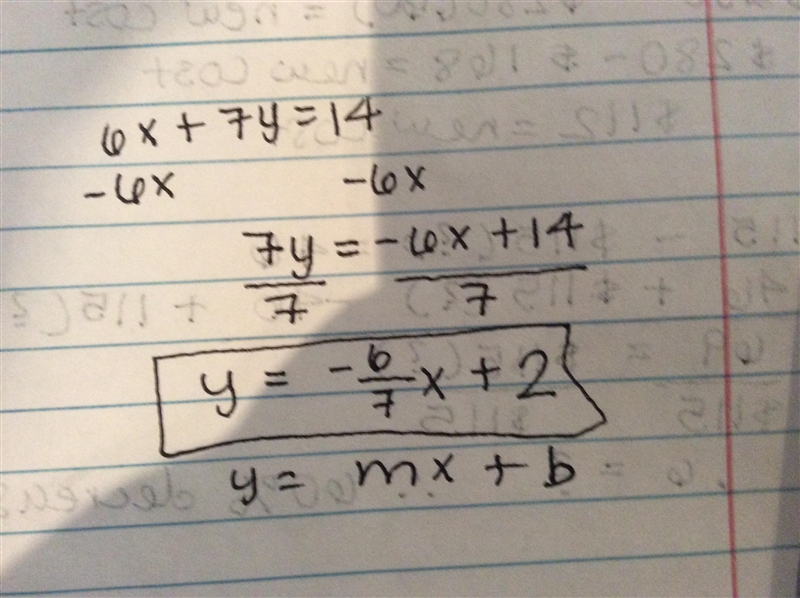 6x + 7y = 14
-6x -6x
7y = -6x + 14
7 7
y = -6/7x + 2
y = mx + b